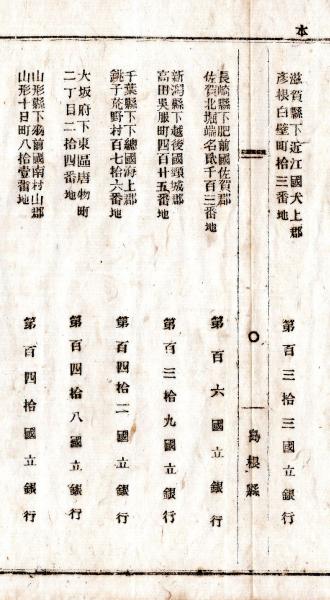 本
滋賀縣下近江國犬上郡
彦根白壁町拾三番地
第百三拾三國立銀行
島根縣
長崎縣下肥前國佐賀郡
佐賀北堀端名邸千百三番地
第百六國立銀行
新潟縣下越後國頸城郡
高田吳服町四百廿五番地
第百三拾九國立銀行
千葉縣下下總國海上郡
銚子荒野村百七拾六番地
第百四拾二國立銀行
大坂府下東區唐物町
二丁目二拾四番地
第百四拾八國立銀行
山形縣下羽前國南村山郡
山形十日町八拾壹番地
第百四拾國立銀行